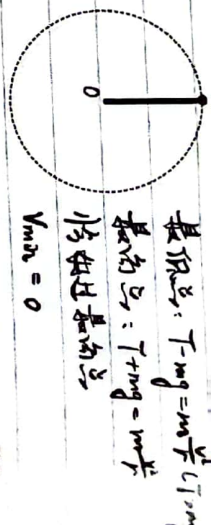 O
最低点：T-mg=m v²/r (T>m
最高点：T+mg=m v²/r
恰好过最高点
Vmin = 0